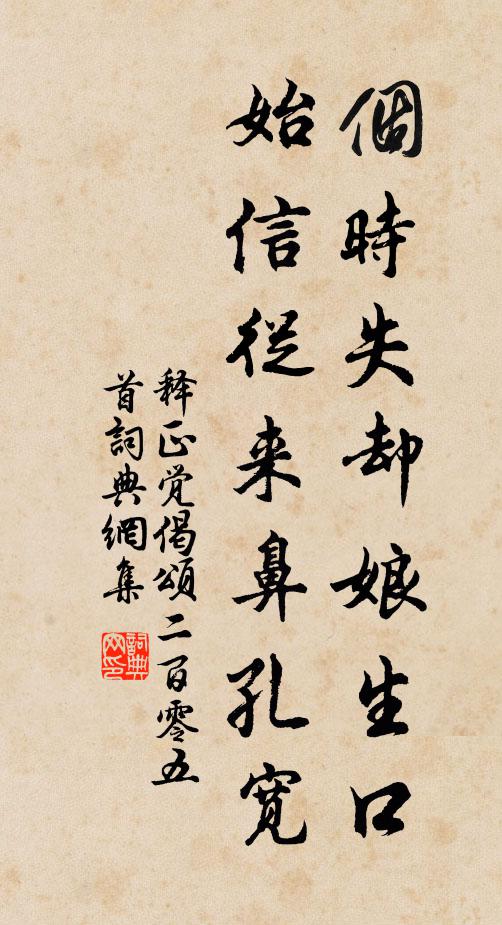 個時失却娘生口
始信從来鼻孔寬
释正覚偈頌二百零五
首詞典網集
詞典
网印